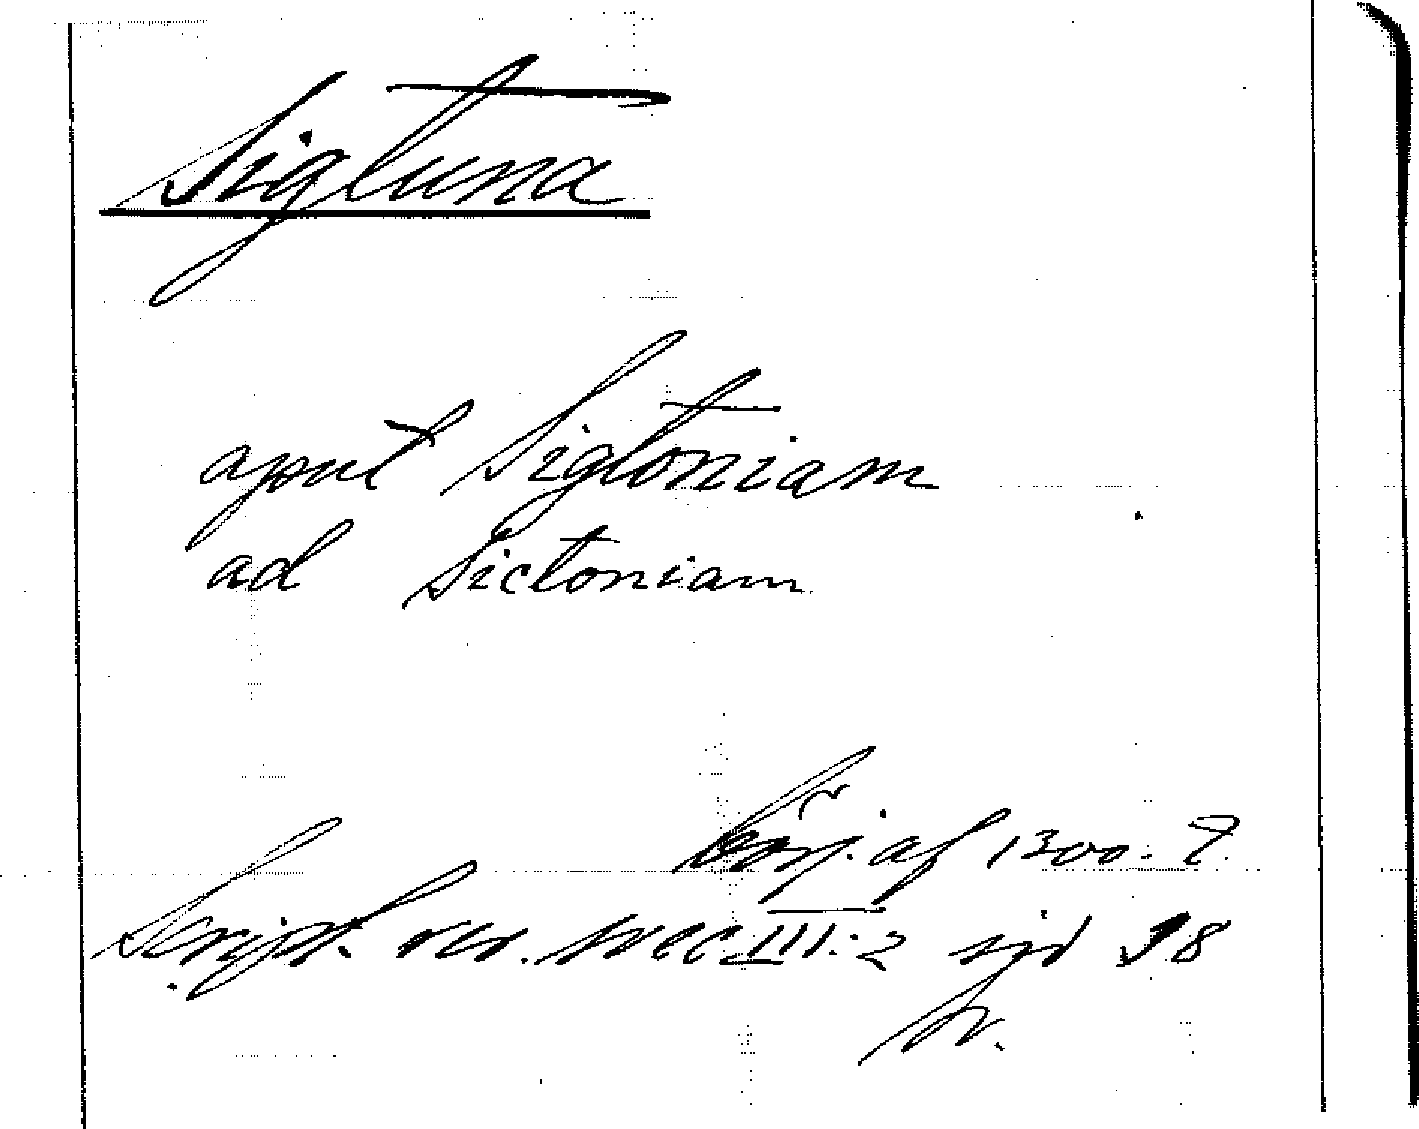 Sigtuna
aput Sigtoniam
ad Sictoniam
börj. af 1300. ?
Script. rer. svec III: 2 sid 98